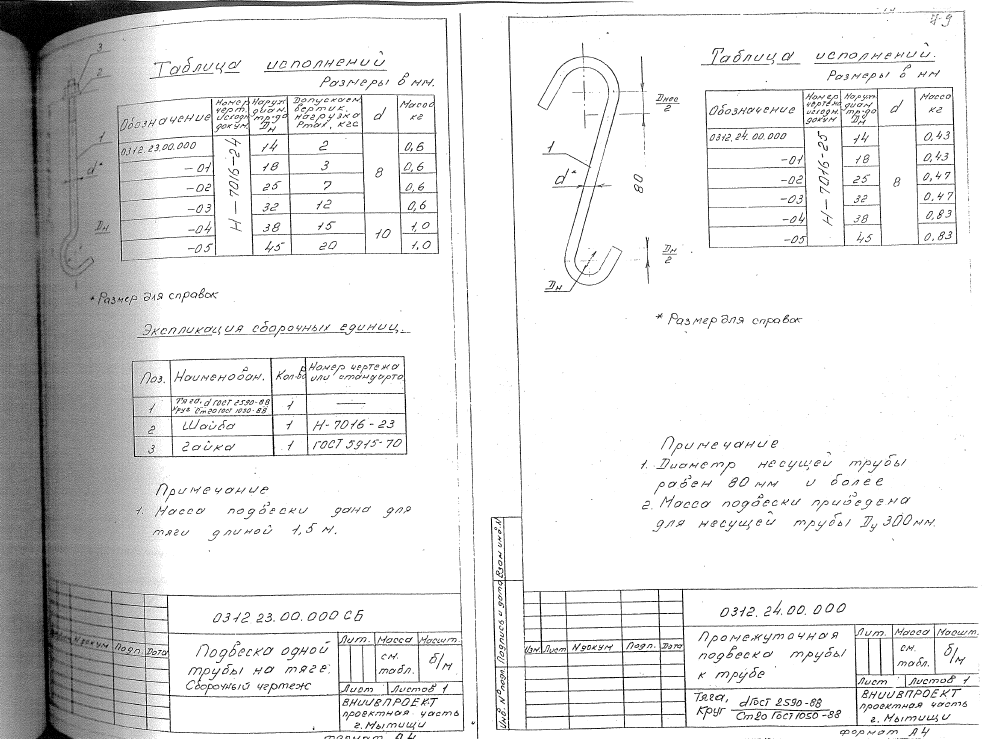 3
2
1
d*
Dн
Таблица исполнений
Размеры в мм.
Обозначение
Номер черт. исходн. докум.
Наруж. диам. тр-да Dн
Допускаем. вертик. нагрузка Pmax, кгс
d
Масса кг
0312.23.00.000 Н-7016-24 14 2 8 0,6
-01 18 3 0,6
-02 25 7 0,6
-03 32 12 0,6
-04 38 15 10 1,0
-05 45 20 1,0
* Размер для справок
Экспликация сборочных единиц
Поз. Наименован. Кол-во Номер чертежа или стандарта
1 Тяга, d ГОСТ 2590-88 Круг Ст20 ГОСТ 1050-88 1 —
2 Шайба 1 Н-7016-23
3 Гайка 1 ГОСТ 5915-70
Примечание
1. Масса подвески дана для
тяги длиной 1,5 м.
0312 23.00.000 СБ
N докум Подп. Дата
Подвеска одной
трубы на тяге.
Сборочный чертеж
Лит. Масса Масшт.
см. табл. б/м
Лист Листов 1
ВНИИВПРОЕКТ
проектная часть
г. Мытищи
формат А4
4-9
Dнес/2
1
d*
80
Dн/2
Dн
Таблица исполнений.
Размеры в мм
Обозначение
Номер чертежа исходн. докум
Наруж. диам. тр-да Dн
d
Масса кг
0312.24.00.000 Н-7016-25 14 8 0,43
-01 18 0,43
-02 25 0,47
-03 32 0,47
-04 38 0,83
-05 45 0,83
* Размер для справок
Примечание
1. Диаметр несущей трубы
равен 80 мм и более
2. Масса подвески приведена
для несущей трубы Dу 300мм.
Инв. N° подл. Подпись и дата Взам инв. N
0312.24.00.000
Изм Лист N докум Подп. Дата
Промежуточная
подвеска трубы
к трубе
Лит. Масса Масшт.
см. табл. б/м
Лист Листов 1
Тяга,
Круг d ГОСТ 2590-88
Ст20 ГОСТ 1050-88
ВНИИВПРОЕКТ
проектная часть
г. Мытищи
формат А4